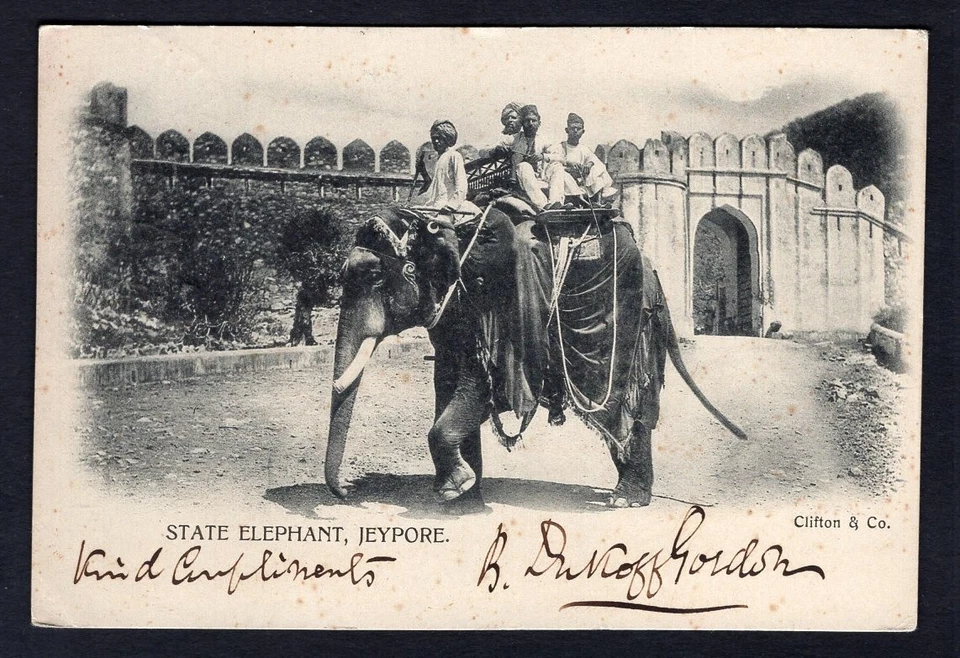 STATE ELEPHANT, JEYPORE.
Clifton & Co.
Kind Compliments
B. Gordon